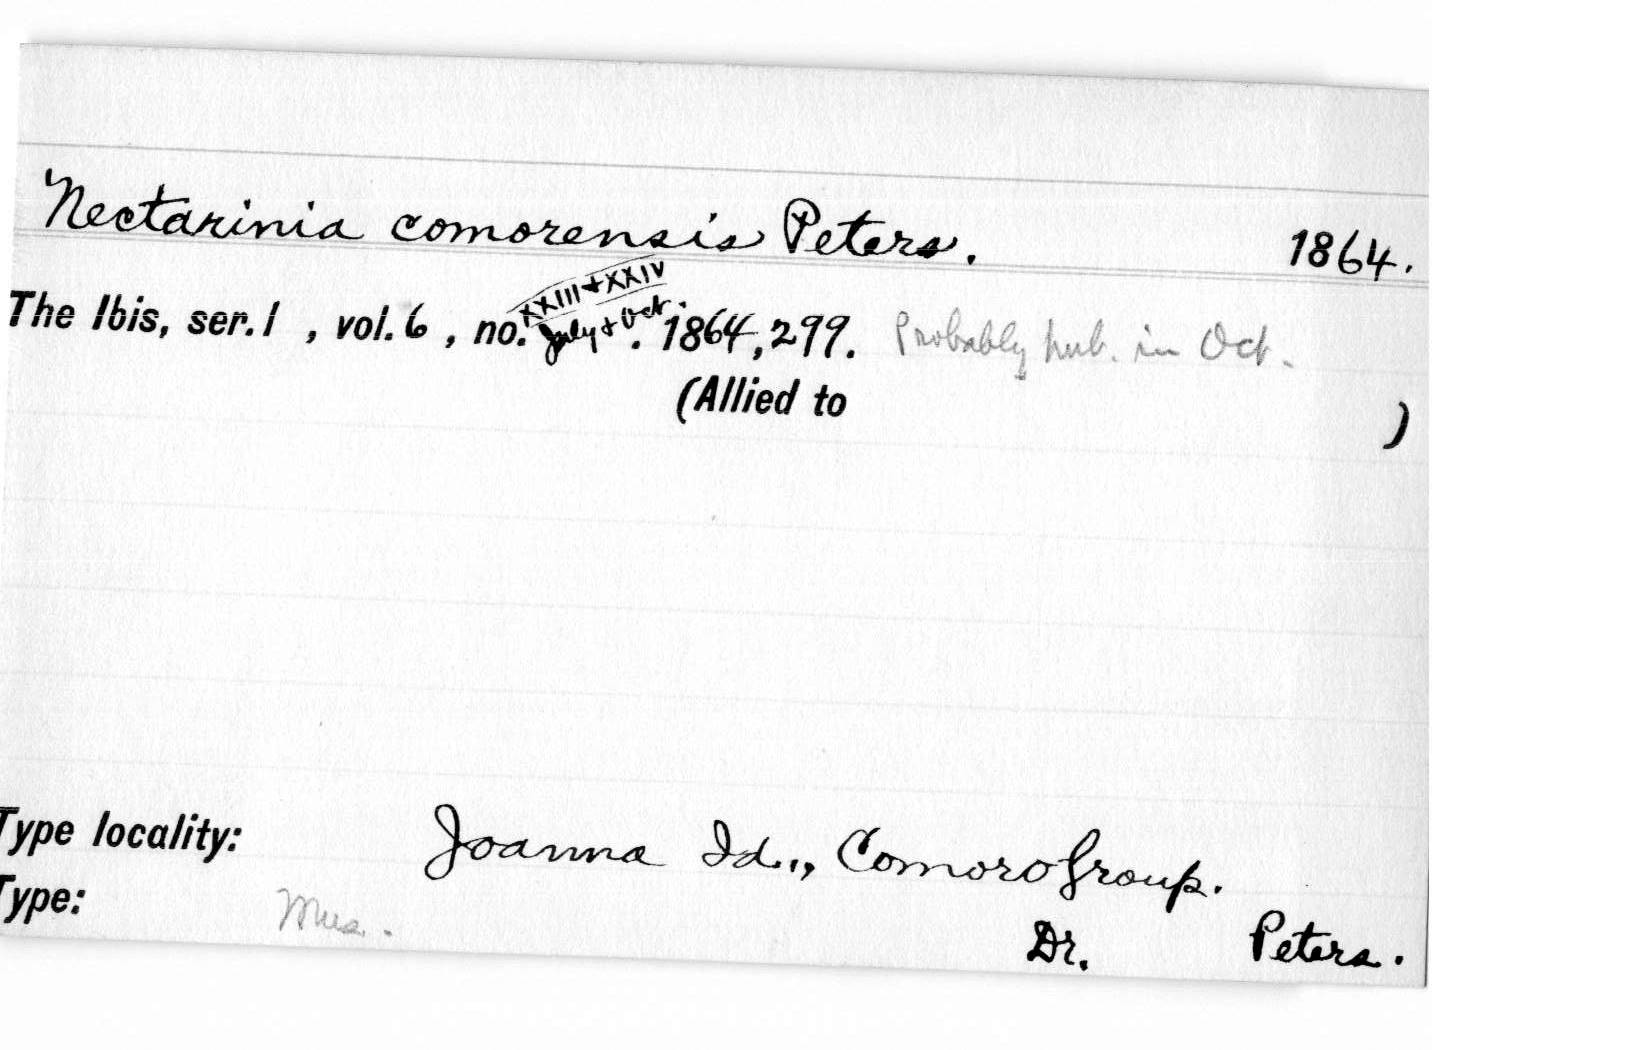 Nectarinia comorensis Peters. 1864.
The Ibis, ser. 1 , vol. 6 , no. XXIII + XXIV July + Oct. 1864, 299. Probably pub. in Oct.
(Allied to )
Type locality: Joanna Id., Comoro Group.
Type: Mus. Dr. Peters.